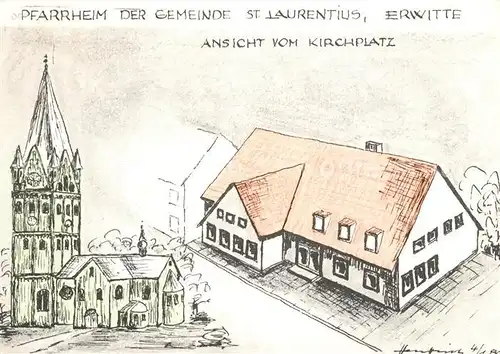 PFARRHEIM DER GEMEINDE ST. LAURENTIUS, ERWITTE
ANSICHT VOM KIRCHPLATZ